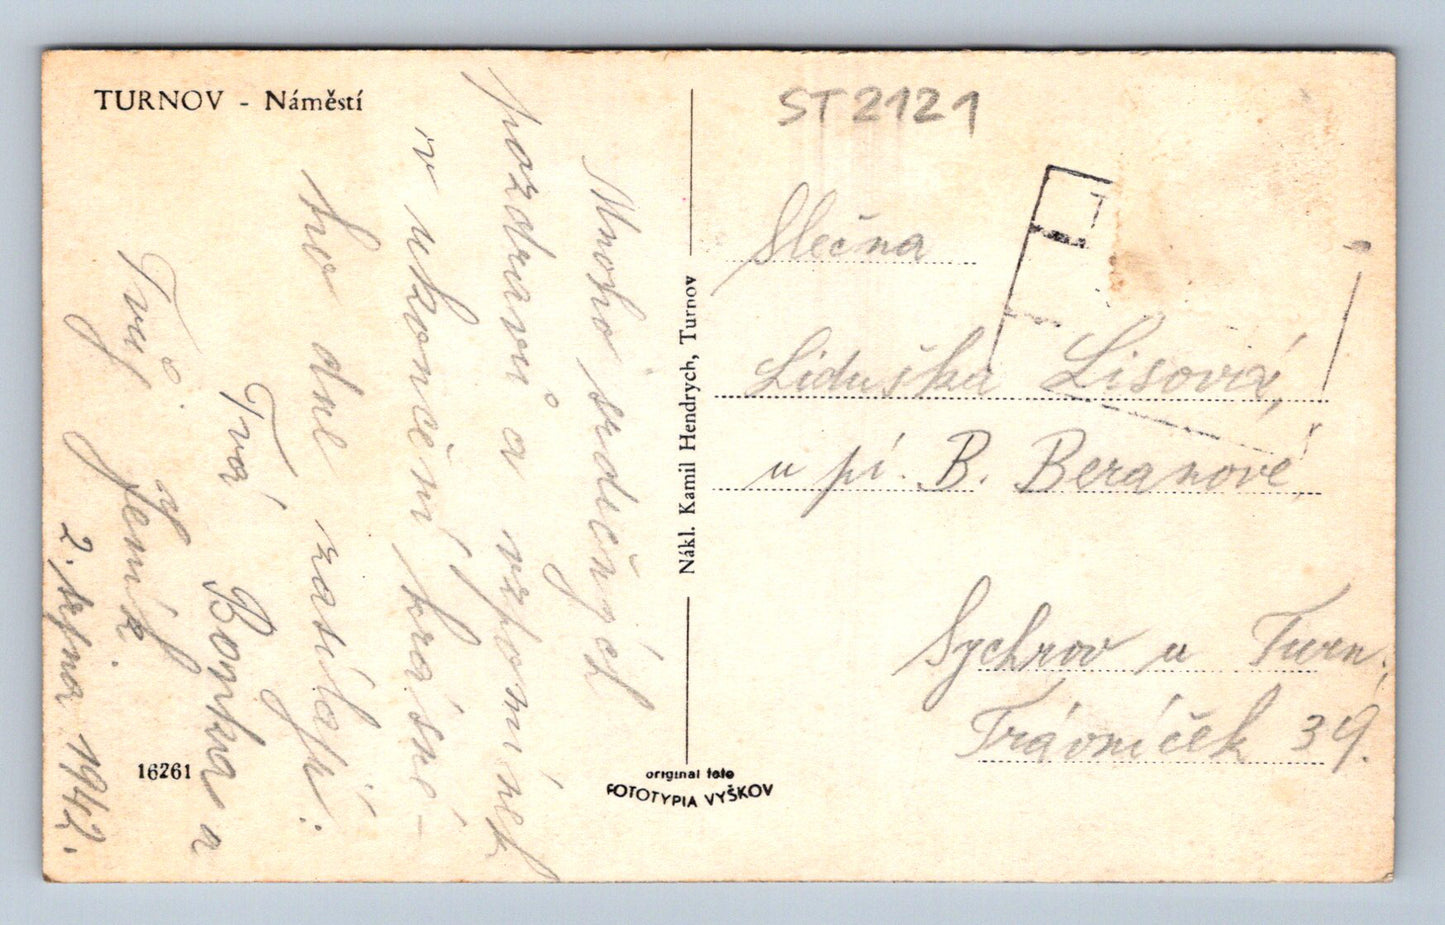 TURNOV - Náměstí
ST2121
Mnoho srdečných
pozdravů a vzpomínek
v ukončení krásné-
ho dne zasílají:
Tvá Bořka a
Tvůj Jeník.
2. srpna 1942.
16261
Nákl. Kamil Hendrych, Turnov
original foto
FOTOTYPIA VYŠKOV
Slečna
Liduška Lisová,
u pí. B. Beranové,
Sychrov u Turn.
Trávníček 39.